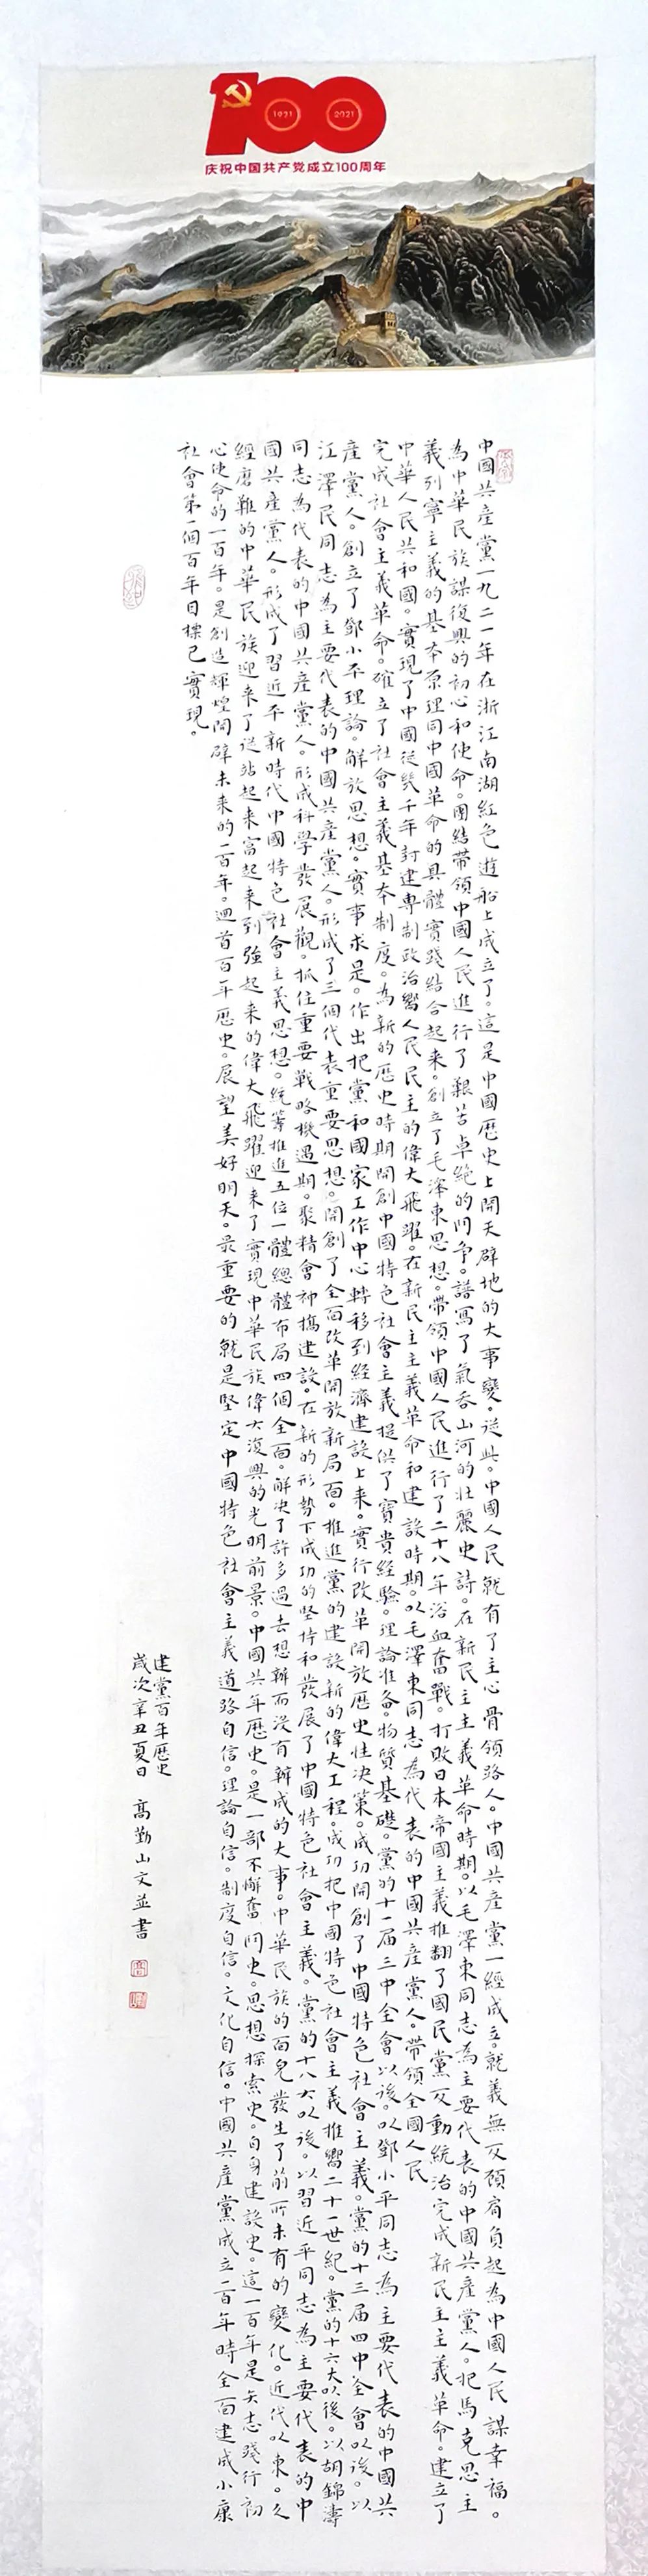 1921
2021
庆祝中国共产党成立100周年
中國共產黨一九二一年在浙江南湖紅色遊船上成立了。這是中國歷史上開天辟地的大事變。從此。中國人民就有了主心骨領路人。中國共產黨一經成立。就義無反顧肩負起為中國人民謀幸福。
為中華民族謀復興的初心和使命。團結帶領中國人民進行了艱苦卓絶的鬥争。譜寫了氣吞山河的壯麗史詩。在新民主主義革命時期。以毛澤東同志為主要代表的中國共產黨人。把馬克思主
義列寧主義的基本原理同中國革命的具體實踐結合起来。創立了毛澤東思想。帶領中國人民進行了二十八年浴血奮戰。打敗日本帝國主義推翻了國民黨反動統治完成新民主主義革命。建立了
中華人民共和國。實現了中國從幾千年封建專制政治嚮人民民主的偉大飛躍。在新民主主義革命和建設時期。以毛澤東同志為代表的中國共產黨人。帶領全國人民
完成社會主義革命。確立了社會主義基本制度。為新的歷史時期開創中國特色社會主義提供了寶貴經驗。理論准备。物質基礎。黨的十一届三中全會以後。以鄧小平同志為主要代表的中國共
產黨人。創立了鄧小平理論。解放思想。實事求是。作出把黨和國家工作中心轉移到經濟建設上来。實行改革開放歷史性决策。成功開創了中國特色社會主義。黨的十三届四中全會以後。以
江澤民同志為主要代表的中國共產黨人。形成了三個代表重要思想。開創了全面改革開放新局面。推進黨的建設新的偉大工程。成功把中國特色社會主義推嚮二十一世紀。黨的十六大以後。以胡錦濤
同志為代表的中國共產黨人。形成科學發展觀。抓住重要戰略機遇期。聚精會神搞建設。在新的形勢下成功的堅持和發展了中國特色社會主義。黨的十八大以後。以習近平同志為主要代表的中
國共產黨人。形成了習近平新時代中國特色社會主義思想。統籌推進五位一體總體布局四個全面。解决了許多過去想辦而没有辦成的大事。中華民族的面皃發生了前所未有的變化。近代以来。久
經磨難的中華民族迎来了從站起来富起来到強起来的偉大飛躍迎来了實現中華民族偉大復興的光明前景。中國共年歷史。是一部不懈奮鬥史。思想探索史。自身建設史。這一百年是矢志踐行初
心使命的一百年。是創造輝煌開辟未来的一百年。迴首百年歷史。展望美好明天。最重要的就是堅定中國特色社會主義道路自信。理論自信。制度自信。文化自信。中國共產黨成立一百年時全面建成小康
社會第一個百年目標已實現。
建黨百年歷史
歲次辛丑夏日 高勤山文並書